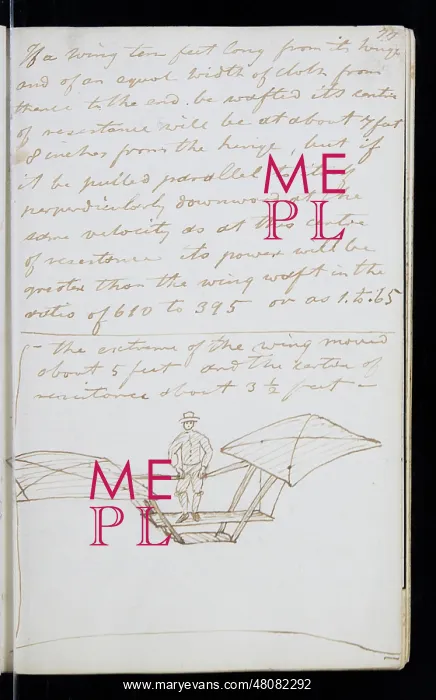 If a wing ten feet long from its hinge
and of an equal width of cloth from
thence to the end. be wafted its centre
of resistance will be at about 7 feet
8 inches from the hinge, but if
it be pulled parallel to itself
perpendicularly downward at the
same velocity as at this centre
of resistance its power will be
greater than the wing waft in the
ratio of 610 to 395 or as 1. to .65
- the extreme of the wing moved
about 5 feet and the centre of
resistance about 3 1/2 feet -
ME
PL
ME
PL
www.maryevans.com/48082292